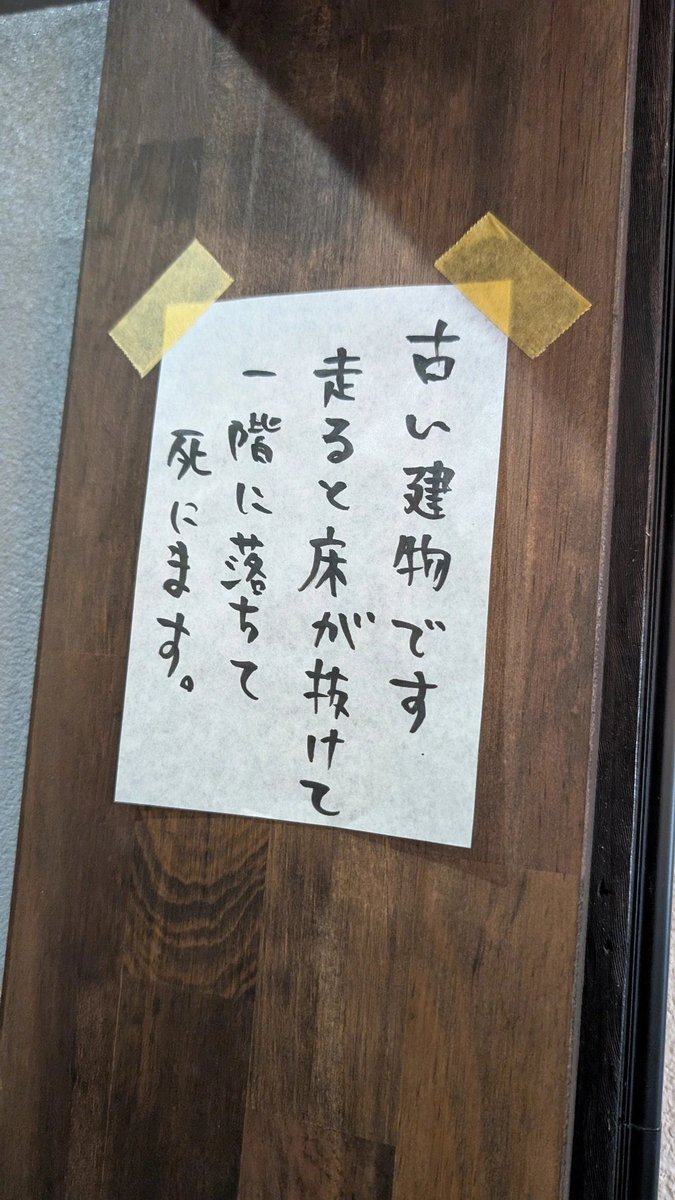 古い建物です
走ると床が抜けて
一階に落ちて
死にます。